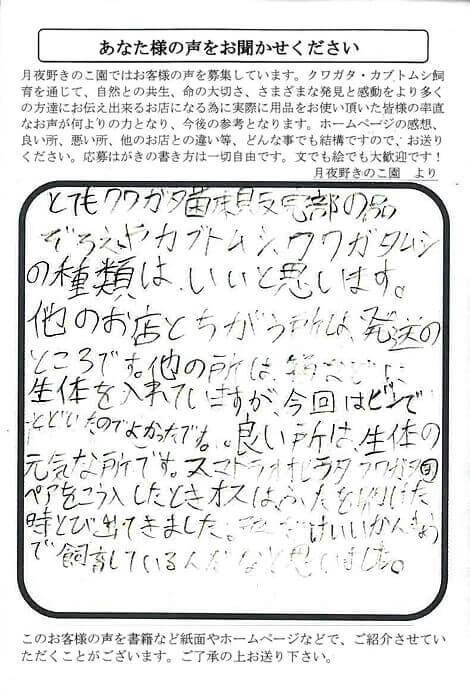 あなた様の声をお聞かせください
月夜野きのこ園ではお客様の声を募集しています。クワガタ・カブトムシ飼
育を通じて、自然との共生、命の大切さ、さまざまな発見と感動をより多く
の方達にお伝え出来るお店になる為に実際に用品をお使い頂いた皆様の率直
なお声が何よりの力となり、今後の参考となります。ホームページの感想、
良い所、悪い所、他のお店との違い等、どんな事でも結構ですので、お送り
ください。応募はがきの書き方は一切自由です。文でも絵でも大歓迎です！
月夜野きのこ園　より
とてもクワガタ菌床販売部の品
ぞろえやカブトムシ、クワガタムシ
の種類は、いいと思います。
他のお店とちがう所は、発送の
ところです。他の所は、箱などに
生体を入れていますが、今回はビンで
とどいたのでよかったです。良い所は、生体の
元気な所です。スマトラオオヒラタクワガタ
ペアをこう入したときオスは、ふたを開けた
時とび出てきました。けいいかんきょう
で飼育している人だなと思いました。
このお客様の声を書籍など紙面やホームページなどで、ご紹介させてい
ただくことがございます。ご了承の上お送り下さい。